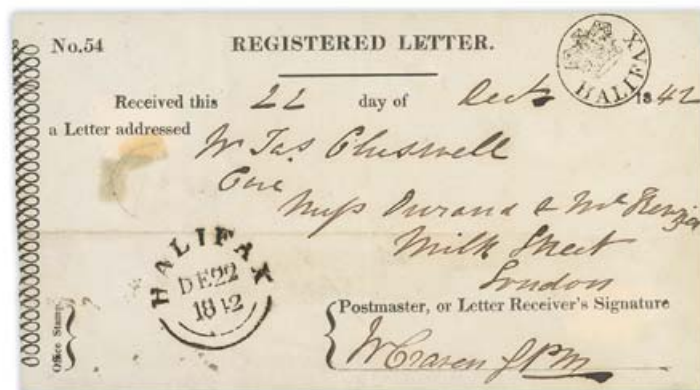 No.54 REGISTERED LETTER.
HALIFAX
Received this 22 day of Decr 1842
a Letter addressed
Mr Jas Chiswell
Care
Messs Durand & McKenzie
Milk Street
London
HALIFAX
DE22
1842
Office Stamp.
Postmaster, or Letter Receiver's Signature
W Craven PM